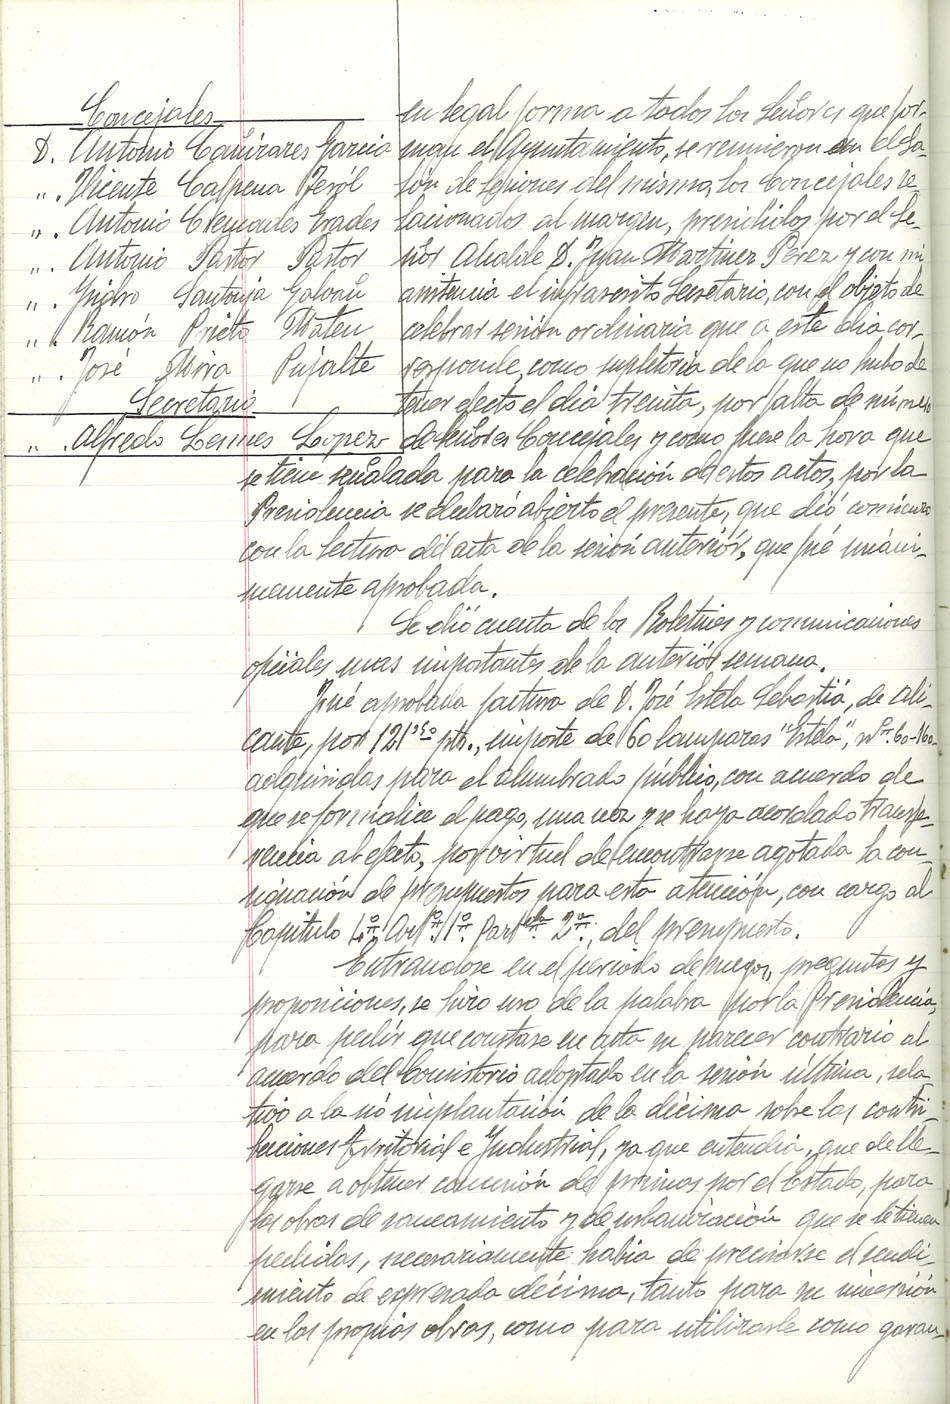 Concejales
D. Antonio Cañizares Garcia
". Vicente Calpena Jeról
". Antonio Cremades Erades
". Antonio Pastor Pastor
". Ysidro Santonja Galvañ
". Ramón Prieto Mateu
". José Mira Pujalte
Secretario
". Alfredo Lesmes Lopez
en legal forma a todos los Señores que for-
man el Ayuntamiento, se reunieron en el Sa-
lón de Sesiones del mismo, los Concejales re-
lacionados al margen, presididos por el Se-
ñor Alcalde D. Juan Martinez Pérez y con mi
asistencia el infrascrito Secretario, con el objeto de
celebrar sesión ordinaria que a este dia cor-
responde, como supletoria de la que no hubo de
tener efecto el dia treinta, por falta de número
de Señores Concejales y como fuese la hora que
se tiene señalada para la celebración de estos actos, por la
Presidencia se declaró abierto el presente, que dió comienzo
con la lectura del acta de la sesión anterior, que fué unáni-
memente aprobada.
Se dió cuenta de los Boletines y comunicaciones
oficiales mas importantes de la anterior semana.
Fué aprobada factura de D. José Estela Sebastiá, de Ali-
cante, por 121'50 pts., importe de 60 lamparas "Estela",
adquiridas para el alumbrado público, con acuerdo de
que se formalice el pago, una vez se haya acordado transfe-
rencia al efecto, por virtud de encontrarse agotada la con-
signación de presupuestos para esta atención, con cargo al
Capitulo 4º, Artº 1º Partda 2ª, del presupuesto.
Entrandose en el periodo de ruegos, preguntas y
proposiciones, se hizo uso de la palabra por la Presidencia,
para pedir que constase en acta su parecer contrario al
acuerdo del Consistorio adoptado en la sesión última, rela-
tivo a la nó implantación de la décima sobre las contri-
buciones Territorial e Yndustrial, ya que entendia, que de lle-
garse a obtener concesión de primas por el Estado, para
las obras de saneamiento y de urbanización que se le tienen
pedidas, necesariamente habia de precisarse el rendi-
miento de expresada décima, tanto para su inversión
en las propias obras, como para utilizarle como garan-